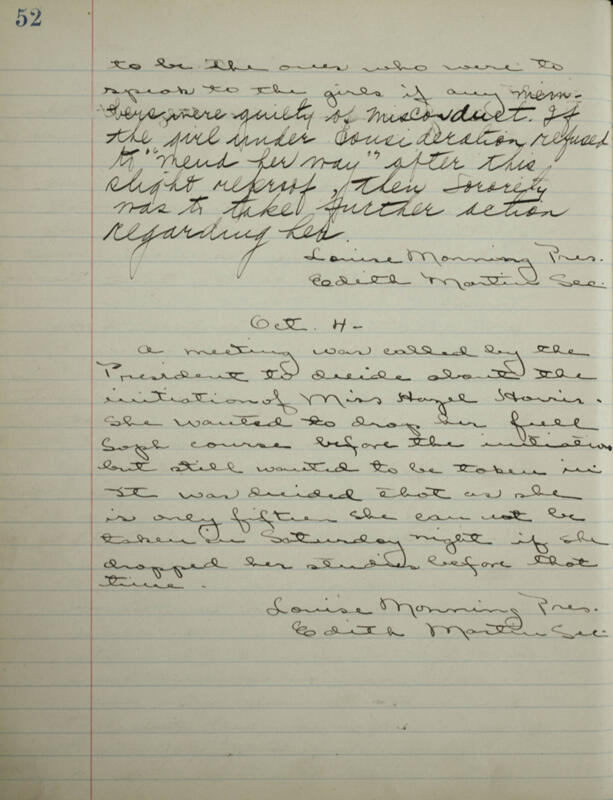 52
to be the ones who were to
speak to the girls if any mem-
bers were guilty of misconduct. If
the girl under consideration refused
to "mend her way" after this
slight reproof, then Sorority
was to take further action
regarding her.
Louise Monning Pres.
Edith Martin Sec.
Oct. 4-
A meeting was called by the
President to decide about the
initiation of Miss Hazel Harris.
She wanted to drop her full
Soph course before the initiation
but still wanted to be taken in
It was decided that as she
is only fifteen she can not be
taken in Saturday night if she
dropped her studies before that
time.
Louise Monning Pres.
Edith Martin Sec.